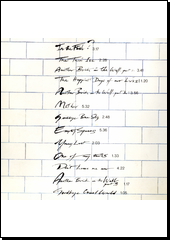 In the Flesh? 3:21
The Thin Ice 2:28
Another Brick in the Wall part 1 3:41
The Happiest Days of our Lives 1:20
Another Brick in the Wall part 2 3:56
Mother 5:32
Goodbye Blue Sky 2:48
Empty Spaces 5:36
Young Lust 2:03
One of my turns 1:33
Don't leave me now 4:22
Another Brick in the Wall part 3 1:17
Goodbye Cruel World 1:05